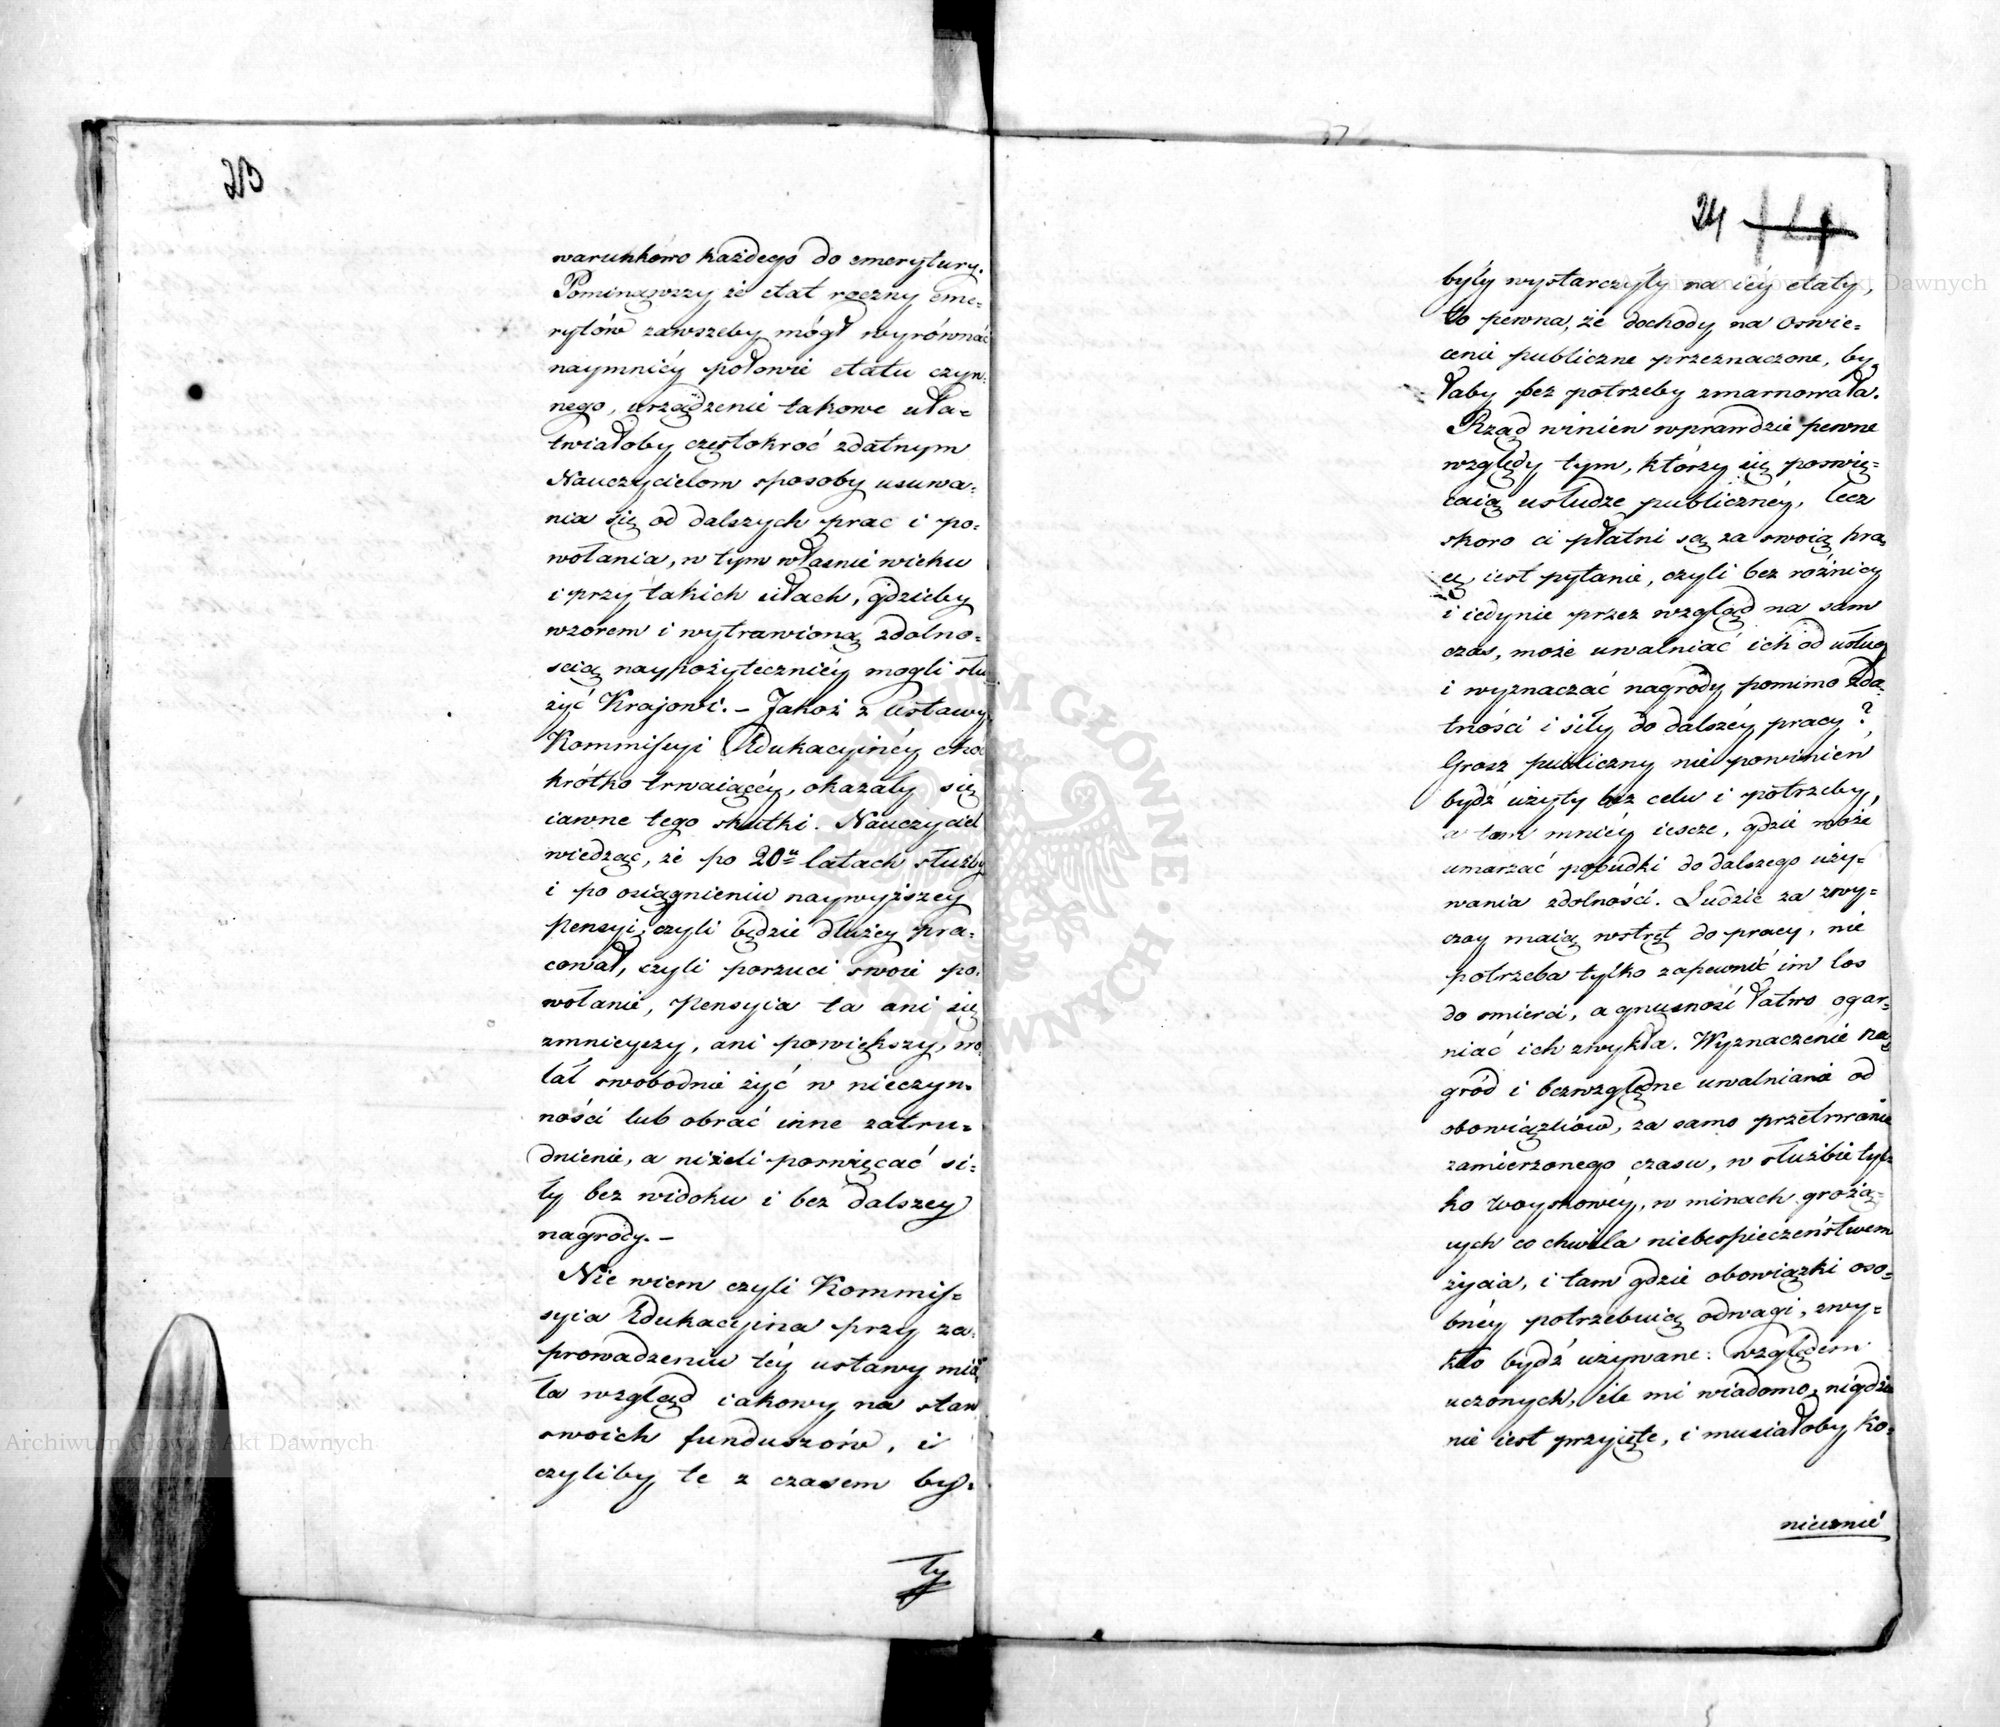 23
warunków każdego do emerytury.
Pominąwszy że etat roczny eme=
rytów zawszeby mógł wyrównać
naymniéy połowie etatu czyn=
nego, urządzenie takowe uła=
twiałoby częstokroć zdatnym
Nauczycielom sposoby usuwa=
nia się od dalszych prac i po=
wołania, w tym własnie wieku
i przy takich siłach, gdzieby
wzorem i wytrawioną zdolno=
scią naypożyteczniéy mogli słu
żyć Krajowi. – Jakoż z ustawy
Kommissyi Edukacyinéy choć
krótko trwaiącéy, okazały się
iawne tego skutki. Nauczyciel
wiedząc, że po 20u latach służby
i po osiągnieniu naywyższey
Pensyi, czyli będzie dłużey pra=
cował, czyli porzuci swoie po=
wołanie, Pensyia ta ani się
zmnieyszy, ani powiększy, wo=
lał swobodnie żyć w nieczyn=
ności lub obrać inne zatru=
dnienie, a niżeli poswięcać si=
ły bez widoku i bez dalszey
nagrody. –
Nie wiem czyli Kommis=
syia Edukacyina przy za=
prowadzeniu téy ustawy mia
ła wzgląd iakowy na stan
swoich funduszów, i
czyliby te z czasem by=
ły
24
były wystarczyły na iéy etaty,
to pewna, że dochody na Oswie=
cenie publiczne przeznaczone, by
łaby bez potrzeby zmarnowała.
Rząd winien wprawdzie pewne
względy tym, którzy się poswię=
caią usłudze publicznéy, lecz
skoro ci płatni są za swoią pra
cę, iest pytanie, czyli bez róźnicy
i iedynie przez wzgląd na sam
czas, może uwalniać ich od usług
i wyznaczać nagrody pomimo zda=
tności i siły do dalszéy pracy?
Grosz publiczny nie powinien
bydź użyty bez celu i potrzeby,
a tem mniéy iescze, gdzie może
umarzać pobudki do dalszego uży=
wania zdolności. Ludzie za zwy=
czay maią wstręt do pracy, nie
potrzeba tylko zapewnić im los
do smierci, a gnusność łatwo ogar=
niać ich zwykła. Wyznaczenie na=
gród i bezwzględne uwalniania od
obowiązków, za samo przetrwanie
zamierzonego czasu, w służbie tyl=
ko woyskowéy, w minach grożą=
cych co chwila niebespieczeństwem
życia, i tam gdzie obowiązki oso=
bnéy potrzebuią odwagi, zwy=
kło bydź używane: względem
uczonych, ile mi wiadomo, nigdzie
nie iest przyięte, i musiałoby ko=
niecznie
Archiwum Główne Akt Dawnych